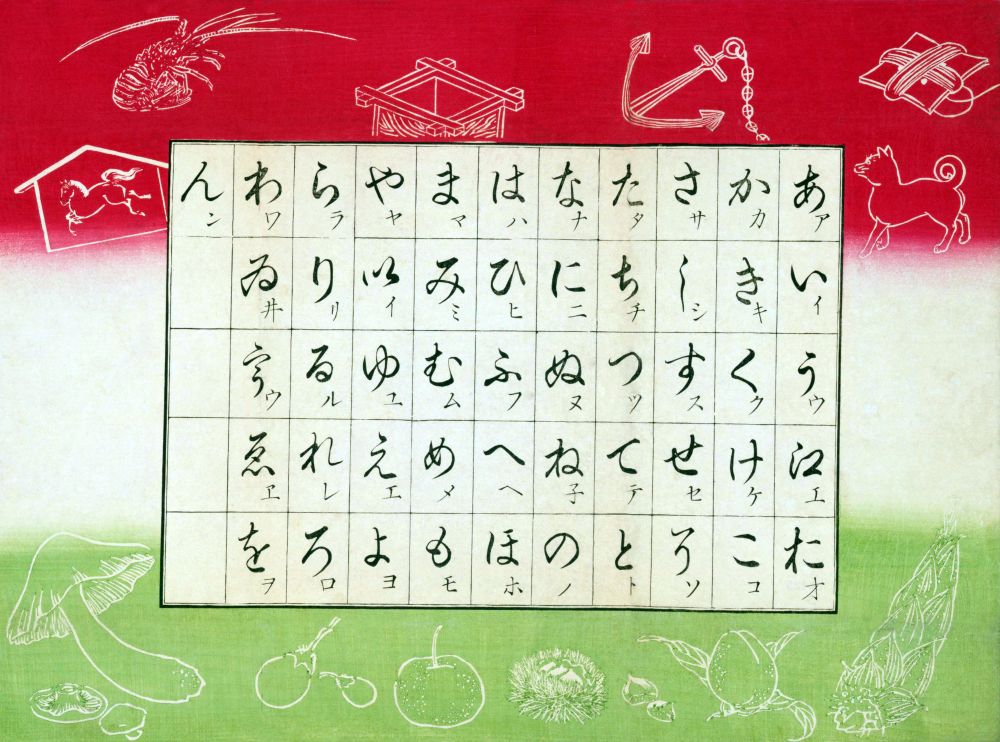 あア いイ うウ 江エ おオ
かカ きキ くク けケ こコ
さサ しシ すス せセ そソ
たタ ちチ つツ てテ とト
なナ にニ ぬヌ ね子 のノ
はハ ひヒ ふフ へヘ ほホ
まマ みミ むム めメ もモ
やヤ 以イ ゆユ えエ よヨ
らラ りリ るル れレ ろロ
わワ ゐ井 うウ ゑヱ をヲ
んン